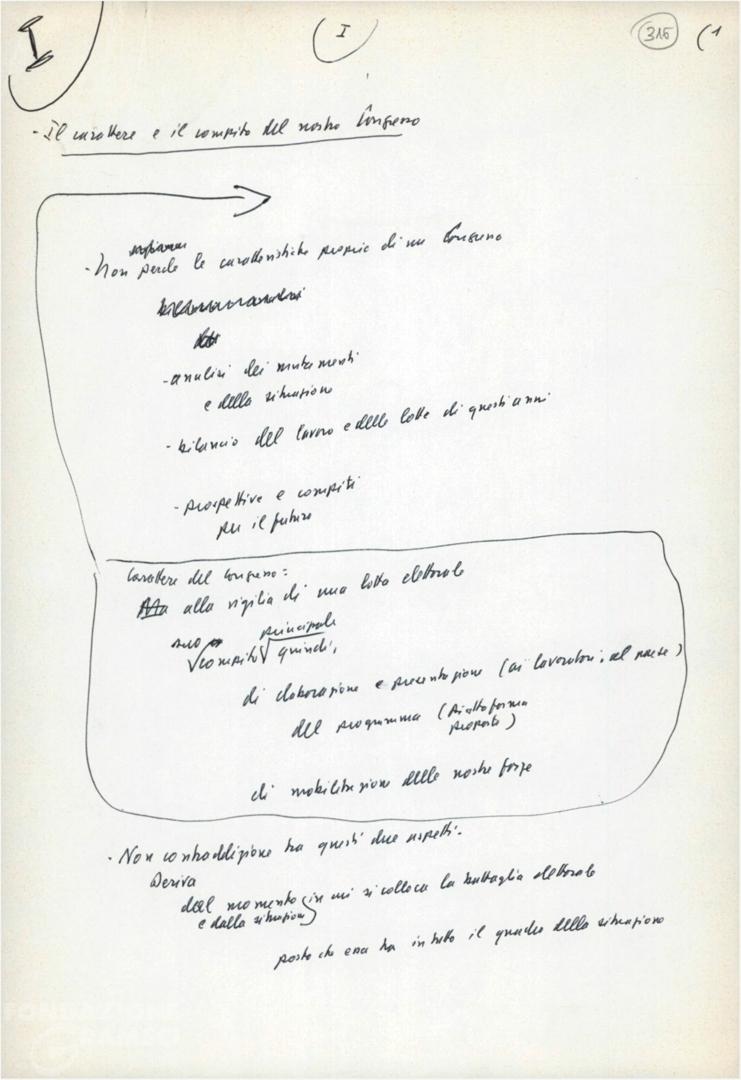 I
I
316
(1
- Il carattere e il compito del nostro Congresso
- Non perde le caratteristiche proprie di un Congresso
- analisi dei mutamenti
e della situazione
- bilancio del lavoro e delle lotte di questi anni
- prospettive e compiti
per il futuro
Carattere del Congresso:
Ma alla vigilia di una lotta elettorale
suo
principale
compito quindi,
di elaborazione e presentazione (ai lavoratori, al paese)
del programma (Piattaforma
proposta)
di mobilitazione delle nostre forze
- Non contraddizione tra questi due aspetti.
Deriva
dal momento in cui si colloca la battaglia elettorale
e dalla situazione
posto che essa ha in tutto il quadro della situazione
FONDAZIONE
GRAMSCI